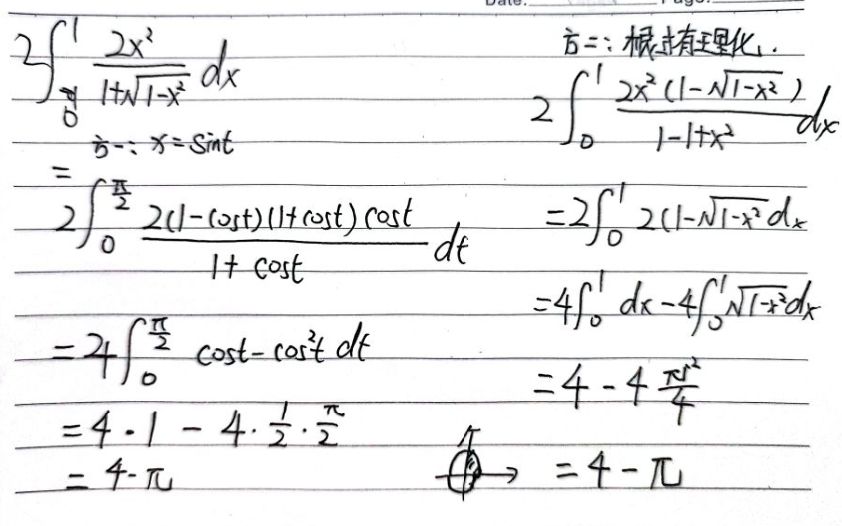 Date. Page.
2∫_0^1 2x²/(1+√(1-x²)) dx
方一: x=sint
= 2∫_0^{π/2} 2(1-cost)(1+cost)cost/(1+cost) dt
=4∫_0^{π/2} cost-cos²t dt
=4·1-4·1/2·π/2
=4-π
方二: 根式有理化.
2∫_0^1 2x²(1-√(1-x²))/(1-1+x²) dx
=2∫_0^1 2(1-√(1-x²) dx
=4∫_0^1 dx-4∫_0^1 √(1-x²)dx
=4-4 π1²/4
=4-π